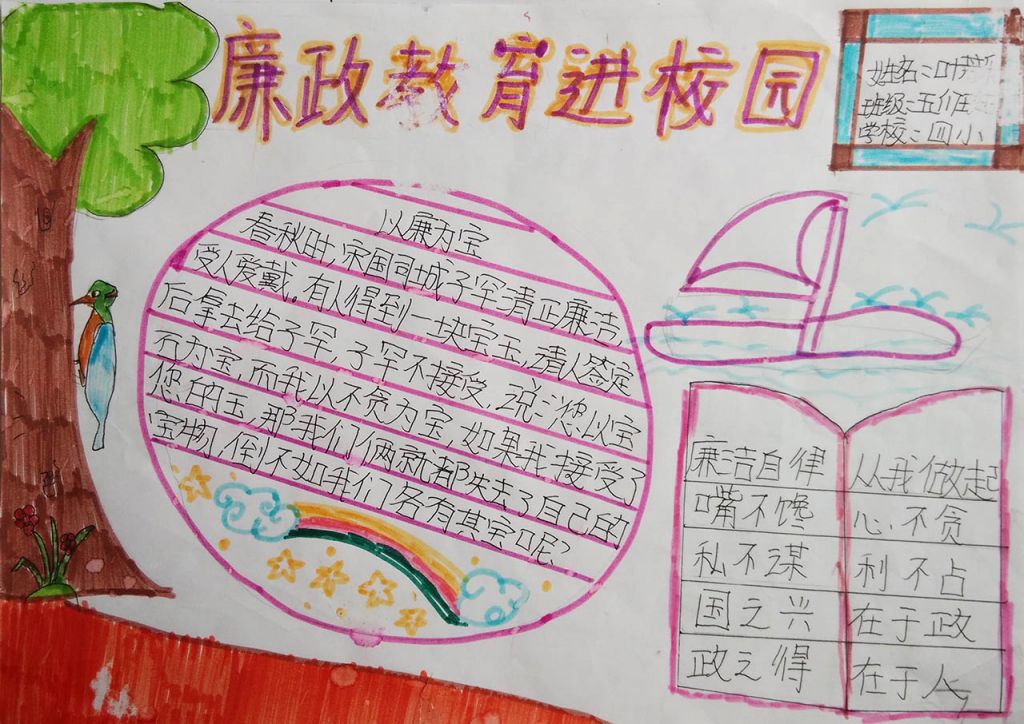 廉政教育进校园
姓名:叶
班级:五
学校:四小
以廉为宝
春秋时,宋国同城子罕清正廉洁,
受人爱戴。有人得到一块宝玉,请人签定
后拿去给子罕,子罕不接受,说:您以宝
石为宝,而我以不贪为宝,如果我接受了
您的玉,那我们俩就都失去了自己的
宝物,倒不如我们各有其宝呢?
廉洁自律 从我做起
嘴不馋 心不贪
私不谋 利不占
国之兴 在于政
政之得 在于人